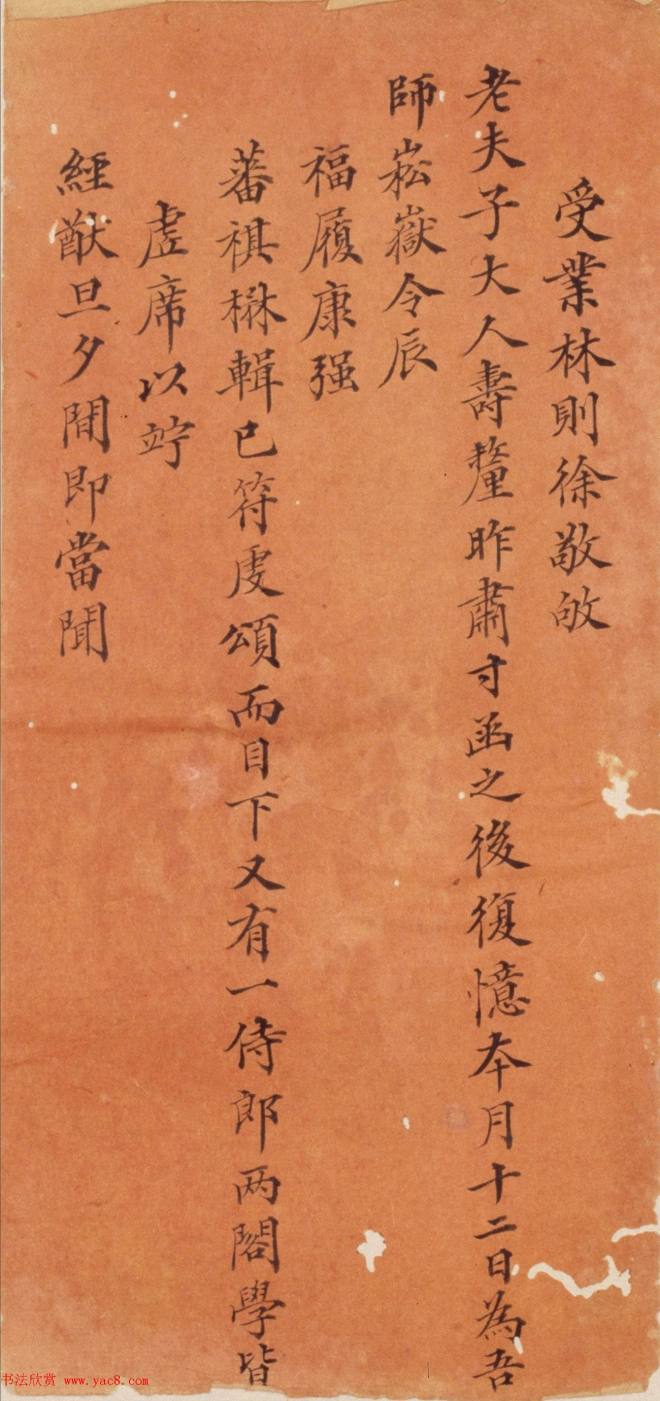 受業林則徐敬啟
老夫子大人壽釐昨肅寸函之後復憶本月十二日為吾
師崧嶽令辰
福履康强
蕃祺楙輯已符虔頌而目下又有一侍郎两閣學皆
虚席以竚
經猷旦夕間即當聞
书法欣赏 www.yac8.com